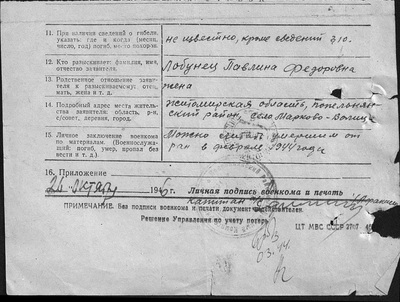 11. При наличии сведений о гибели, указать: где и когда (месяц, число, год) погиб, по-похорон.
не известно, кроме сведений з 10.
12. Кто разыскивает: фамилия, имя, отчество заявителя.
Лобунец Павлина Федоровна
13. Родственное отношение заявителя к разыскиваемому: отец, мать, жена и т. д.
жена
14. Подробный адрес места жительства заявителя: область, р-н, с/совет, деревня, город.
Житомирская область, Попельнянский район, село Марково-Волица
15. Личное заключение военкома по материалам. (Военнослужащий: погиб, умер, пропал без вести и т. д.)
Можно считать умершим от ран в феврале 1944 года
16. Приложение
26 октября 1946 г. Личная подпись военкома и печать
капитан
ПРИМЕЧАНИЕ. Без подписи военкома и печати документ
Решение Управления по учету потерь
ЦТ МВС СССР